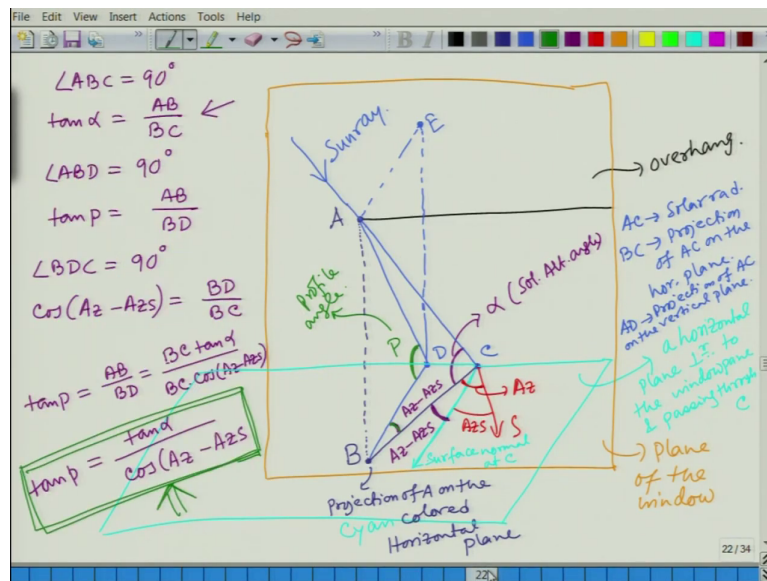 File Edit View Insert Actions Tools Help
∠ABC = 90°
tanα = AB/BC
∠ABD = 90°
tanP = AB/BD
∠BDC = 90°
cos(Az - Azs) = BD/BC
tanP = AB/BD = BC tanα/BC. cos(Az-Azs)
tanP = tanα/cos(Az - Azs
Sunray.
E
A
profile
angle.
P
D
C
α (Sol. Alt. angle)
Az-Azs
Az-Azs
Az
Azs
S
B
Surface normal
at C
Projection of A on the
Cyan colored
Horizontal
plane
overhang.
AC → Solar rad.
BC → Projection
of AC on the
hor. plane.
AD → Projection of AC
on the vertical plane.
a horizontal
plane ⊥r to
the window pane
& passing through
C
plane
of the
window
22 / 34
22